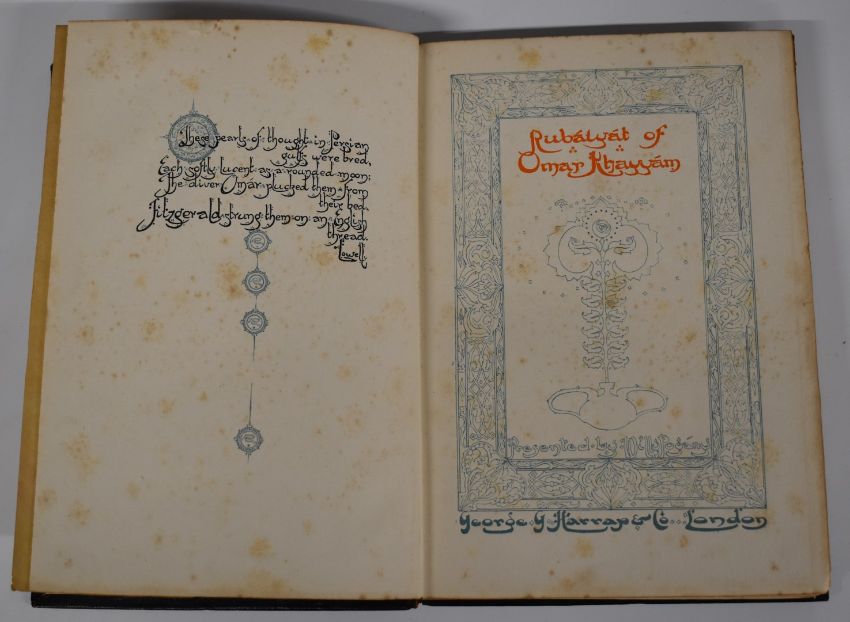 These pearls of thought in Persian
gulfs were bred,
Each softly lucent as a rounded moon;
The diver Omar plucked them from
their bed,
Fitzgerald strung them on an English
thread.
Lowell.
Rubáiyát of
Omar Khayyám
Presented by Willy Pogány
George G Harrap & Co. London